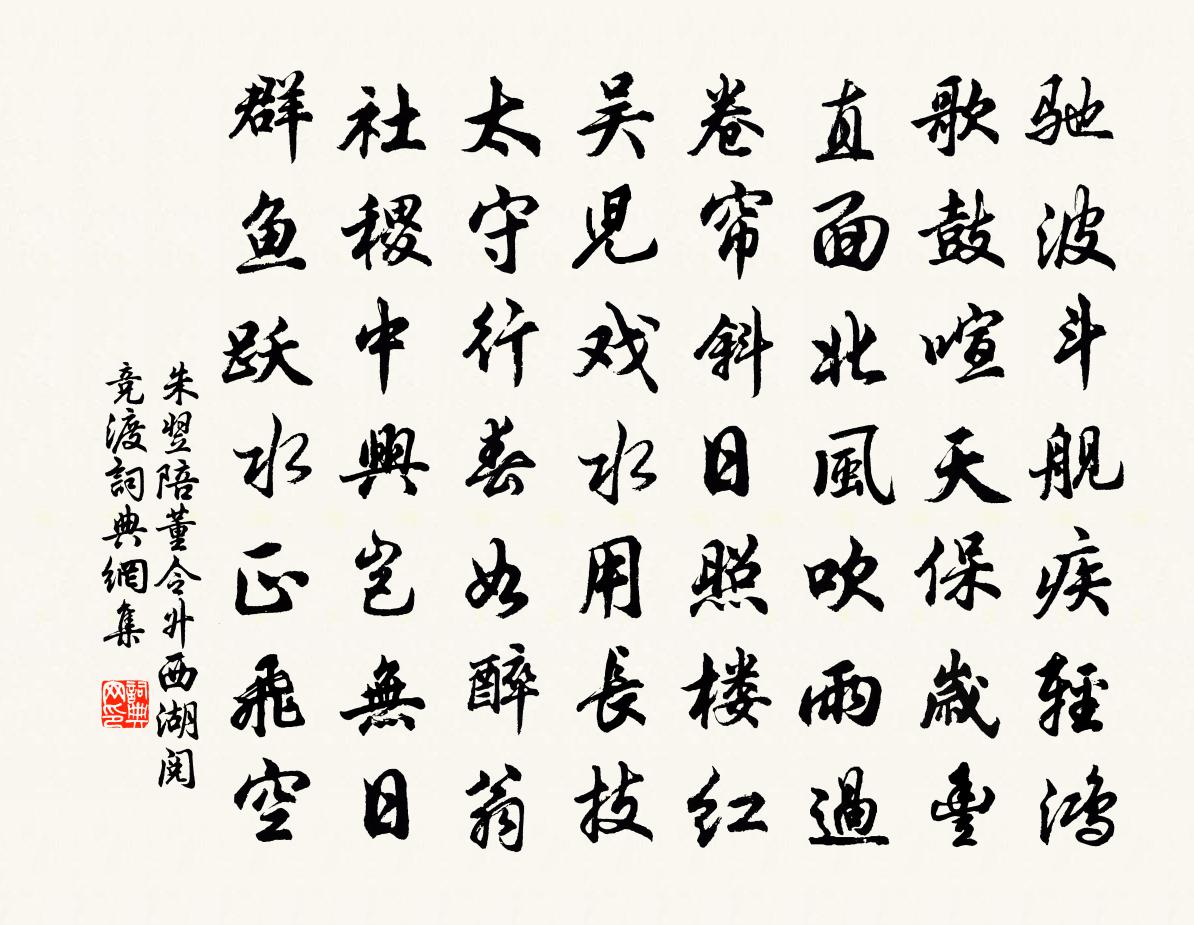 驰波斗舰疾轻鸿
歌鼓喧天保歲豐
直面北風吹雨過
卷帘斜日照楼红
吴児戏水用長技
太守行春如醉翁
社稷中興岂無日
群鱼跃水正飛空
朱翌陪董令升西湖阅
竞渡詞典網集
詞典网印